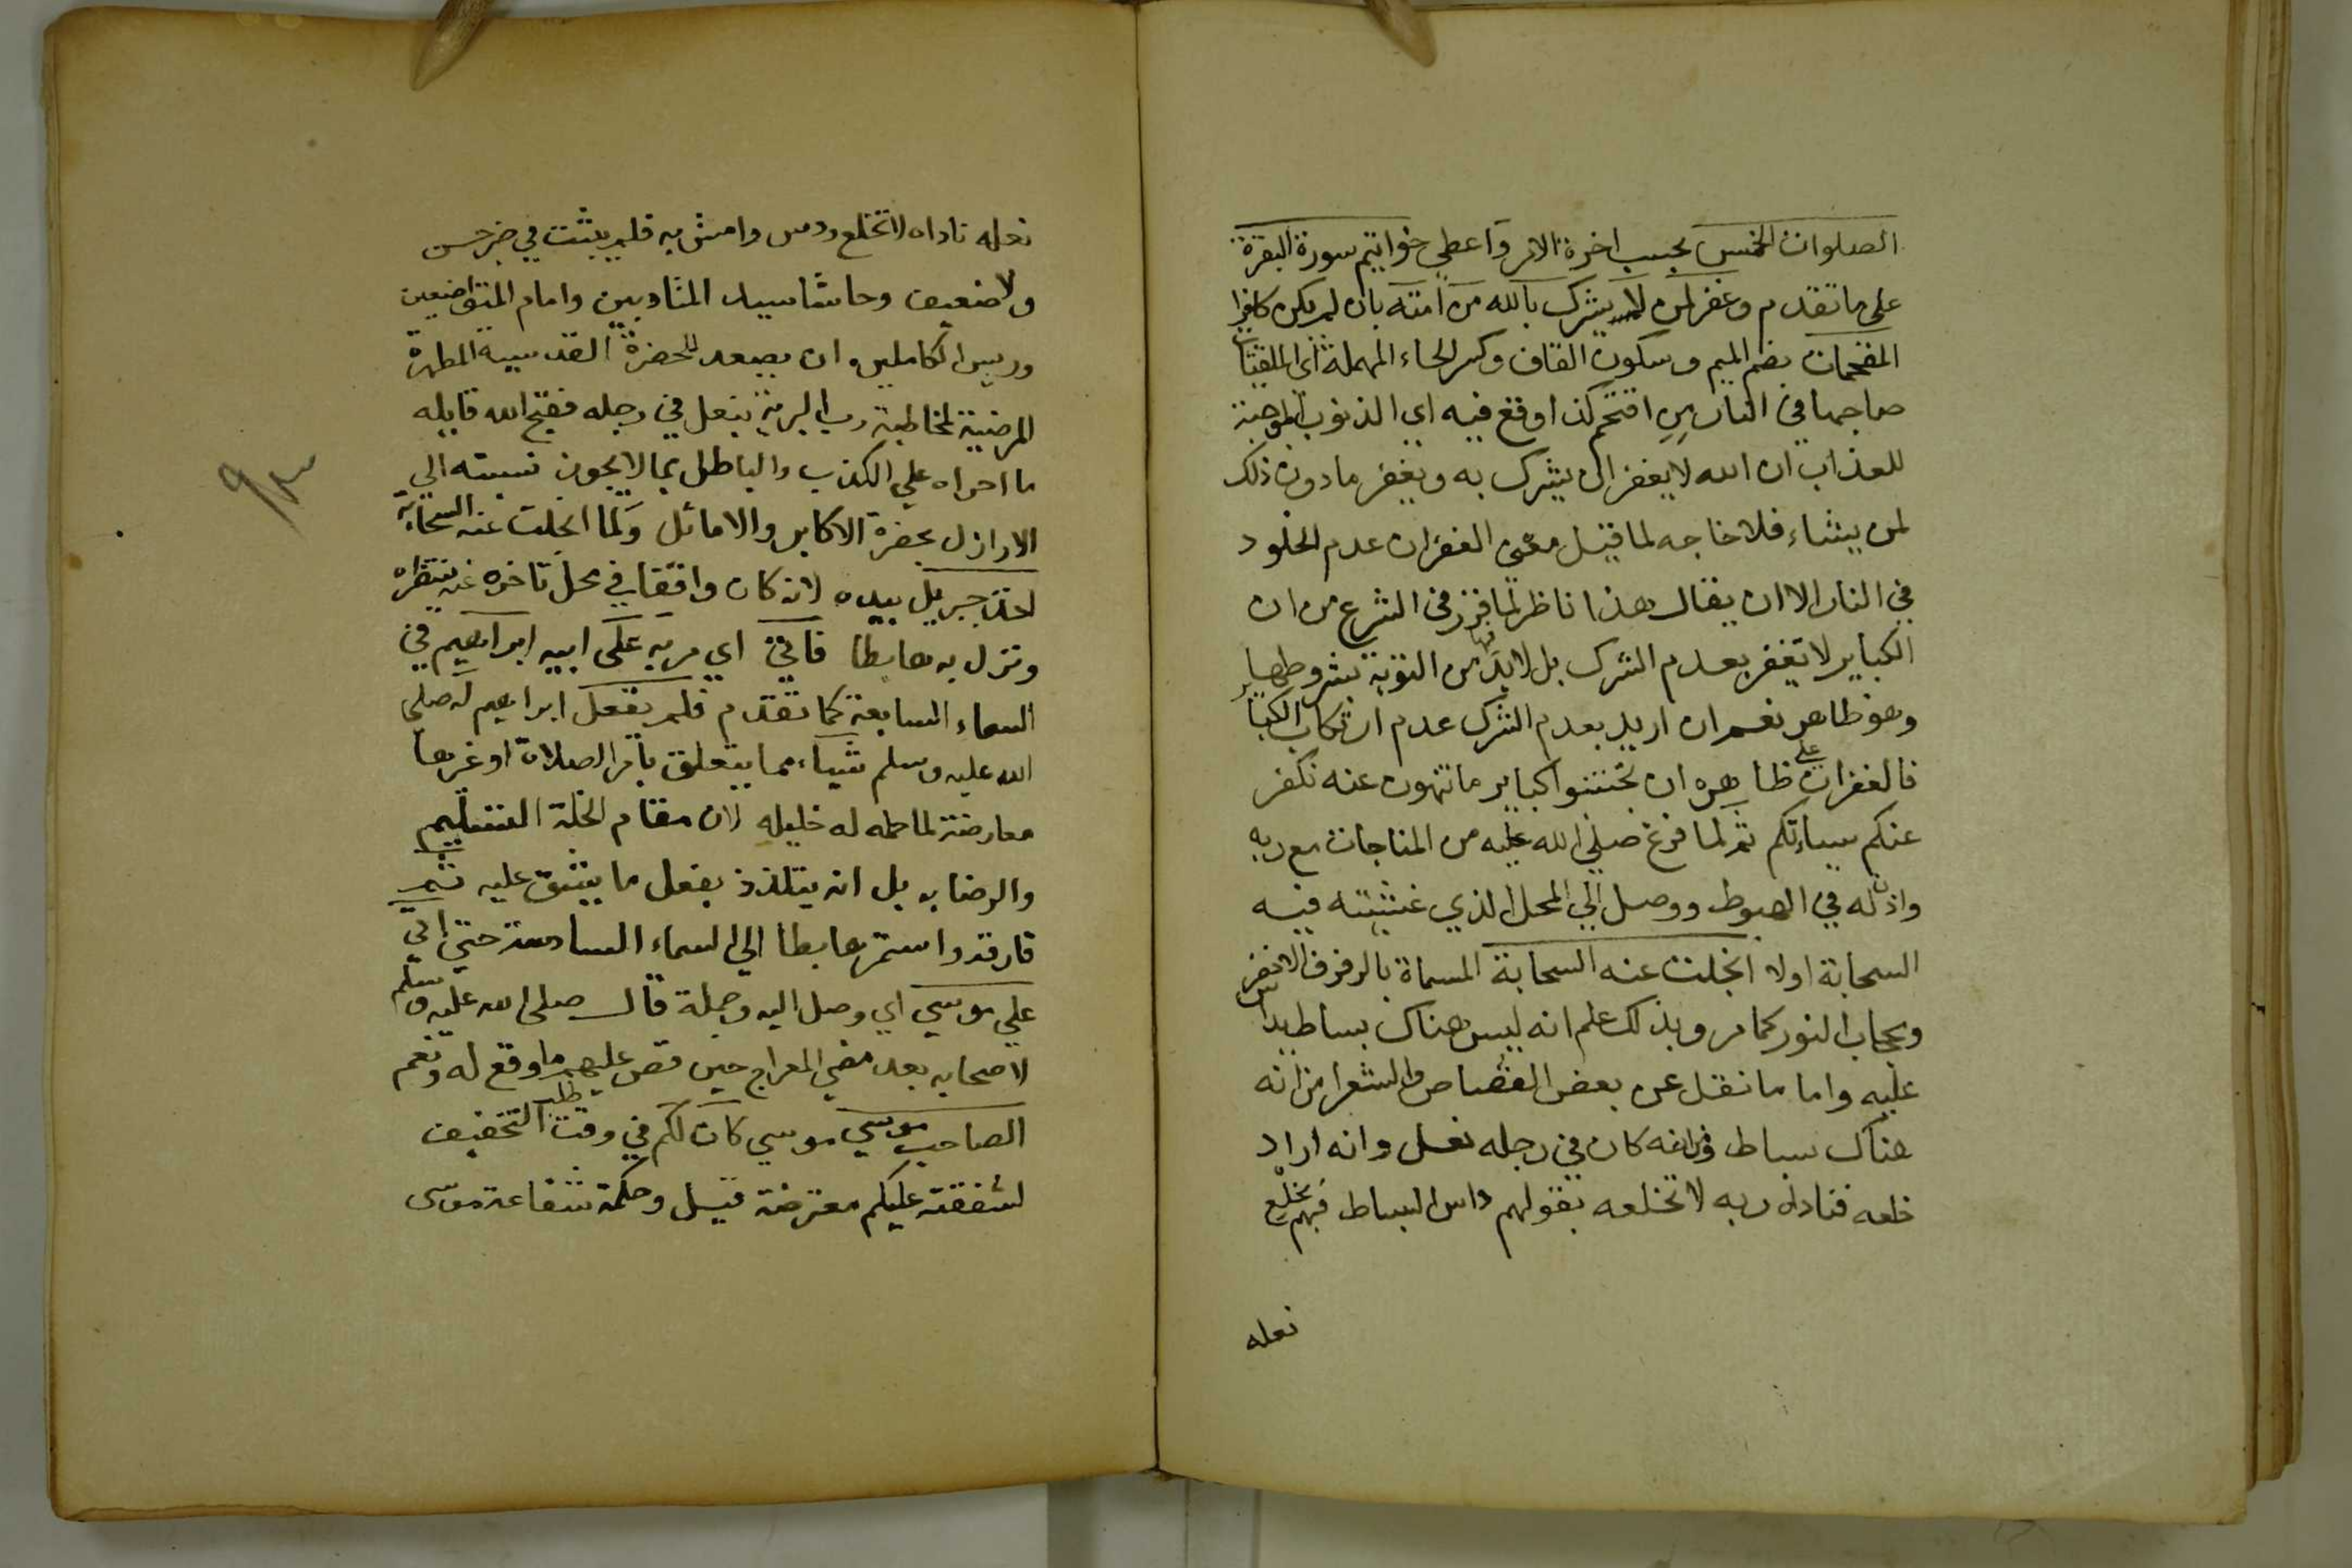 الصلوات الخمس بحسب اخرة الامر واعطي خواتيم سورة البقرة
على ما تقدم وغفر لمن لا يشرك بالله من امته بان لم يكن كافرا
المقحمات بضم الميم وسكون القاف وكسر الحاء المهملة اي الملقيات
صاحبها في النار من اقتحم كذا وقع فيه اي الذنوب الموجبة
للعذاب ان الله لا يغفر ان يشرك به ويغفر ما دون ذلك
لمن يشاء فلا حاجه لما قيل معنى الغفران عدم الخلود
في النار الا ان يقال هذا ناظر لما قرر في الشرع من ان
الكباير لا تغفر بعدم الشرك بل لا بد لها من التوبة بشروطها
وهو ظاهر نعم ان اريد بعدم الشرك عدم ارتكاب الكباير
فالغفران على ظاهره ان تجتنبوا كباير ما تنهون عنه نكفر
عنكم سياتكم ثم لما فرغ صلى الله عليه من المناجات مع ربه
واذن له في الهبوط ووصل الي المحل الذي غشيته فيه
السحابة اولا انجلت عنه السحابة المسماة بالرفرف الاخضر
وبحجاب النور كما مر وبذلك علم انه ليس هناك بساط يداس
عليه واما ما نقل عن بعض القصاص والشعرا من انه
هناك بساط وانه كان في رجله نعل وانه اراد
خلعه فناداه ربه لا تخلعه بقولهم داس البساط فهم بخلع
نعله
نعله ناداه لا تخلع ودس وامش به فلم يثبت في خبر حسن
ولا ضعيف وحاشا سيد المتادبين وامام المتواضعين
وريس الكاملين ان يصعد للحضرة القدسية المطهرة
المرضية لمخاطبة رب البرية بنعل في رجله فقبح الله قايله
ما اجراه علي الكذب والباطل بما لا يجوز نسبته الي
الاراذل بحضرة الاكابر والاماثل ولما انجلت عنه السحابة
اخذ جبريل بيده لانه كان واقفا في محل تاخره عنه ينتظره
ونزل به هابطا فاتى اي مر به على ابيه ابراهيم في
السماء السابعة كما تقدم فلم يقل ابراهيم له صلى
الله عليه وسلم شياء مما يتعلق بامر الصلاة او غيرها
معارضة لما حمله له خليله لان مقام الخلة التسليم
والرضا به بل انه يتلذذ بفعل ما يشق عليه ثم
فارقه واستمر هابطا الي السماء السادسة حتى اتي
علي موسي اي وصل اليه وجملة قال صلى الله عليه وسلم
لاصحابه بعد مضي المعراج حين قص عليهم ما وقع له ونعم
الصاحب موسي موسي كان لكم في وقت طلب التخفيف
لشفقته عليكم معترضة قيل وحكمة شفاعة موسى
٩٣